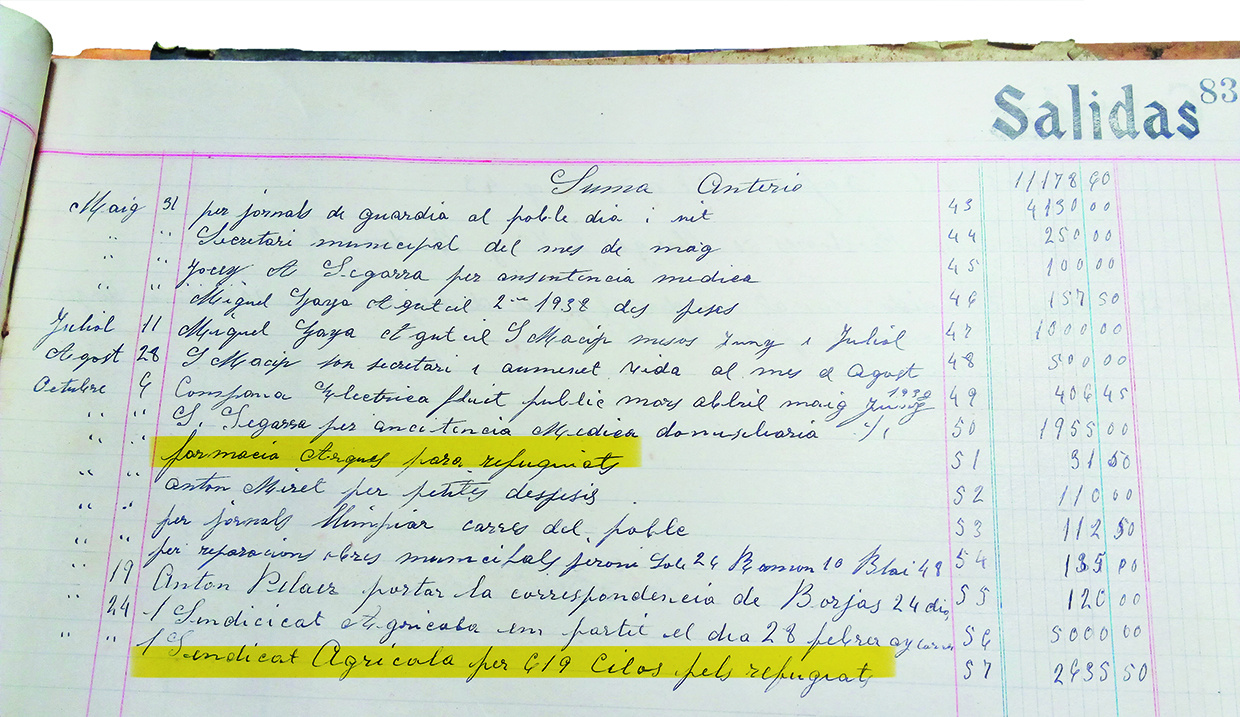 Salidas 83
Suma Anterio 11178 60
Maig 31 per jornals de guardia al poble dia i nit 43 4130 00
" " Secretari municipal del mes de mag 44 250 00
" " Josep A Segarra per ansintencia medica 45 100 00
" " Miguel Gaya Agutcil 2ⁿ 1938 des peses 46 157 50
Juliol 11 Miquel Gaya Agutcil S Macip mesos Juny i Juliol 47 1000 00
Agost 28 S Macip son secretari i aumenet vida al mes d Agost 48 500 00
Octubre 6 Compana Electrica fluit public mars abril maig Juny 1938 49 406 45
" " S. Segarra per ancitencia Medica domisiliaria 50 1955 00
" " farmacia Arques para refuguiats 51 31 50
" " anton Miret per petites despesis 52 110 00
" " per jornals llimpiar carres del poble 53 112 50
" " per reparacions obres municipals peroni 24 Ramon 10 Blai 48 54 135 00
" 19 Anton Pelaez portar la correspondencia de Borjas 24 dia 55 120 00
" 24 1 Sindicicat Agricola em partit el dia 28 febrer 56 5000 00
" " 1 Sindicat Agricola per 619 Cilos pels refugiats 57 2635 50